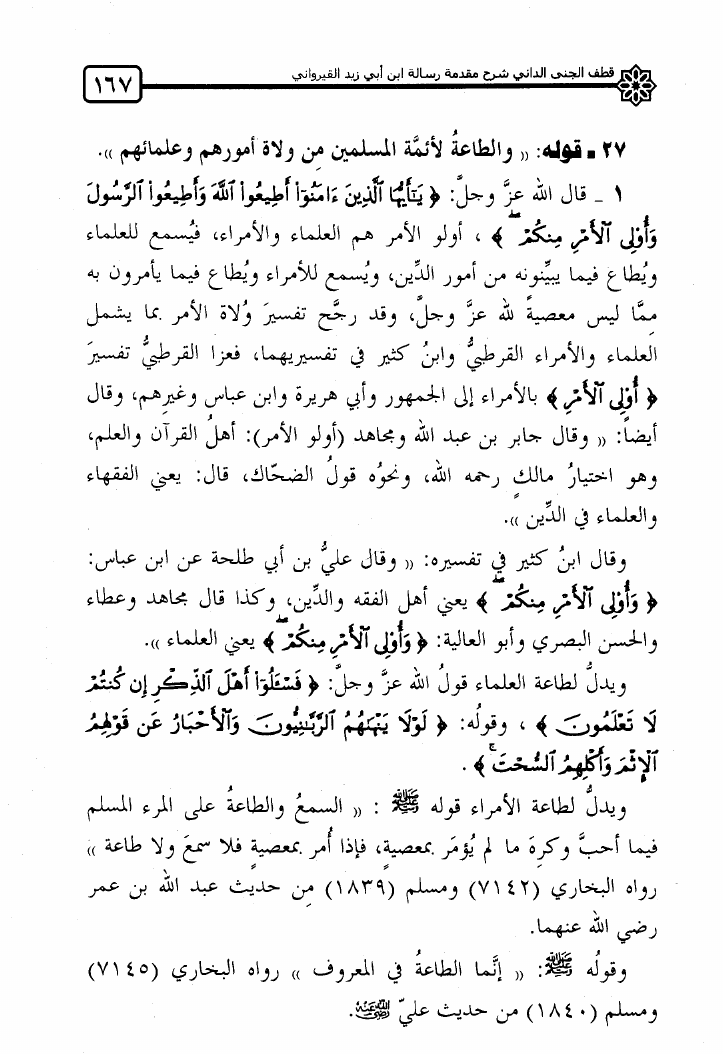 قطف الجنى الداني شرح مقدمة رسالة ابن أبي زيد القيرواني
١٦٧
٢٧ ـ قوله: « والطاعةُ لأئمَّة المسلمين مِن ولاة أمورهم وعلمائهم ».
١ ـ قال الله عزَّ وجلَّ: ﴿ يَـٰٓأَيُّهَا ٱلَّذِينَ ءَامَنُوٓا۟ أَطِيعُوا۟ ٱللَّهَ وَأَطِيعُوا۟ ٱلرَّسُولَ
وَأُو۟لِى ٱلْأَمْرِ مِنكُمْ ۖ ﴾ ، أولو الأمر هم العلماء والأمراء، فيُسمع للعلماء
ويُطاع فيما يبيِّنونه من أمور الدِّين، ويُسمع للأمراء ويُطاع فيما يأمرون به
مِمَّا ليس معصيةً لله عزَّ وجلَّ، وقد رجَّح تفسيرَ وُلاة الأمر بما يشمل
العلماء والأمراء القرطبيُّ وابنُ كثير في تفسيريهما، فعزا القرطبيُّ تفسيرَ
﴿ أُو۟لِى ٱلْأَمْرِ ﴾ بالأمراء إلى الجمهور وأبي هريرة وابن عباس وغيرِهم، وقال
أيضاً: « وقال جابر بن عبد الله ومجاهد (أولو الأمر): أهلُ القرآن والعلم،
وهو اختيارُ مالكٍ رحمه الله، ونحوُه قولُ الضحّاك، قال: يعني الفقهاء
والعلماء في الدِّين ».
وقال ابنُ كثير في تفسيره: « وقال عليُّ بن أبي طلحة عن ابن عباس:
﴿ وَأُو۟لِى ٱلْأَمْرِ مِنكُمْ ۖ ﴾ يعني أهل الفقه والدِّين، وكذا قال مجاهد وعطاء
والحسن البصري وأبو العالية: ﴿ وَأُو۟لِى ٱلْأَمْرِ مِنكُمْ ۖ ﴾ يعني العلماء ».
ويدلُّ لطاعة العلماء قولُ الله عزَّ وجلَّ: ﴿ فَسْـَٔلُوٓا۟ أَهْلَ ٱلذِّكْرِ إِن كُنتُمْ
لَا تَعْلَمُونَ ﴾ ، وقولُه: ﴿ لَوْلَا يَنْهَىٰهُمُ ٱلرَّبَّـٰنِيُّونَ وَٱلْأَحْبَارُ عَن قَوْلِهِمُ
ٱلْإِثْمَ وَأَكْلِهِمُ ٱلسُّحْتَ ۚ ﴾ .
ويدلُّ لطاعة الأمراء قوله ﷺ : « السمعُ والطاعةُ على المرء المسلم
فيما أحبَّ وكرِهَ ما لم يُؤمَر بمعصيةٍ، فإذا أُمر بمعصيةٍ فلا سمعَ ولا طاعة »
رواه البخاري (٧١٤٢) ومسلم (١٨٣٩) مِن حديث عبد الله بن عمر
رضي الله عنهما.
وقولُه ﷺ: « إنَّما الطاعةُ في المعروف » رواه البخاري (٧١٤٥)
ومسلم (١٨٤٠) من حديث عليّ رضي الله عنه.